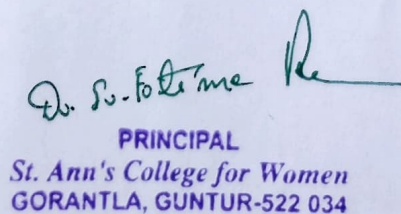 Dr. Sr. Fatima
PRINCIPAL
St. Ann's College for Women
GORANTLA, GUNTUR-522 034